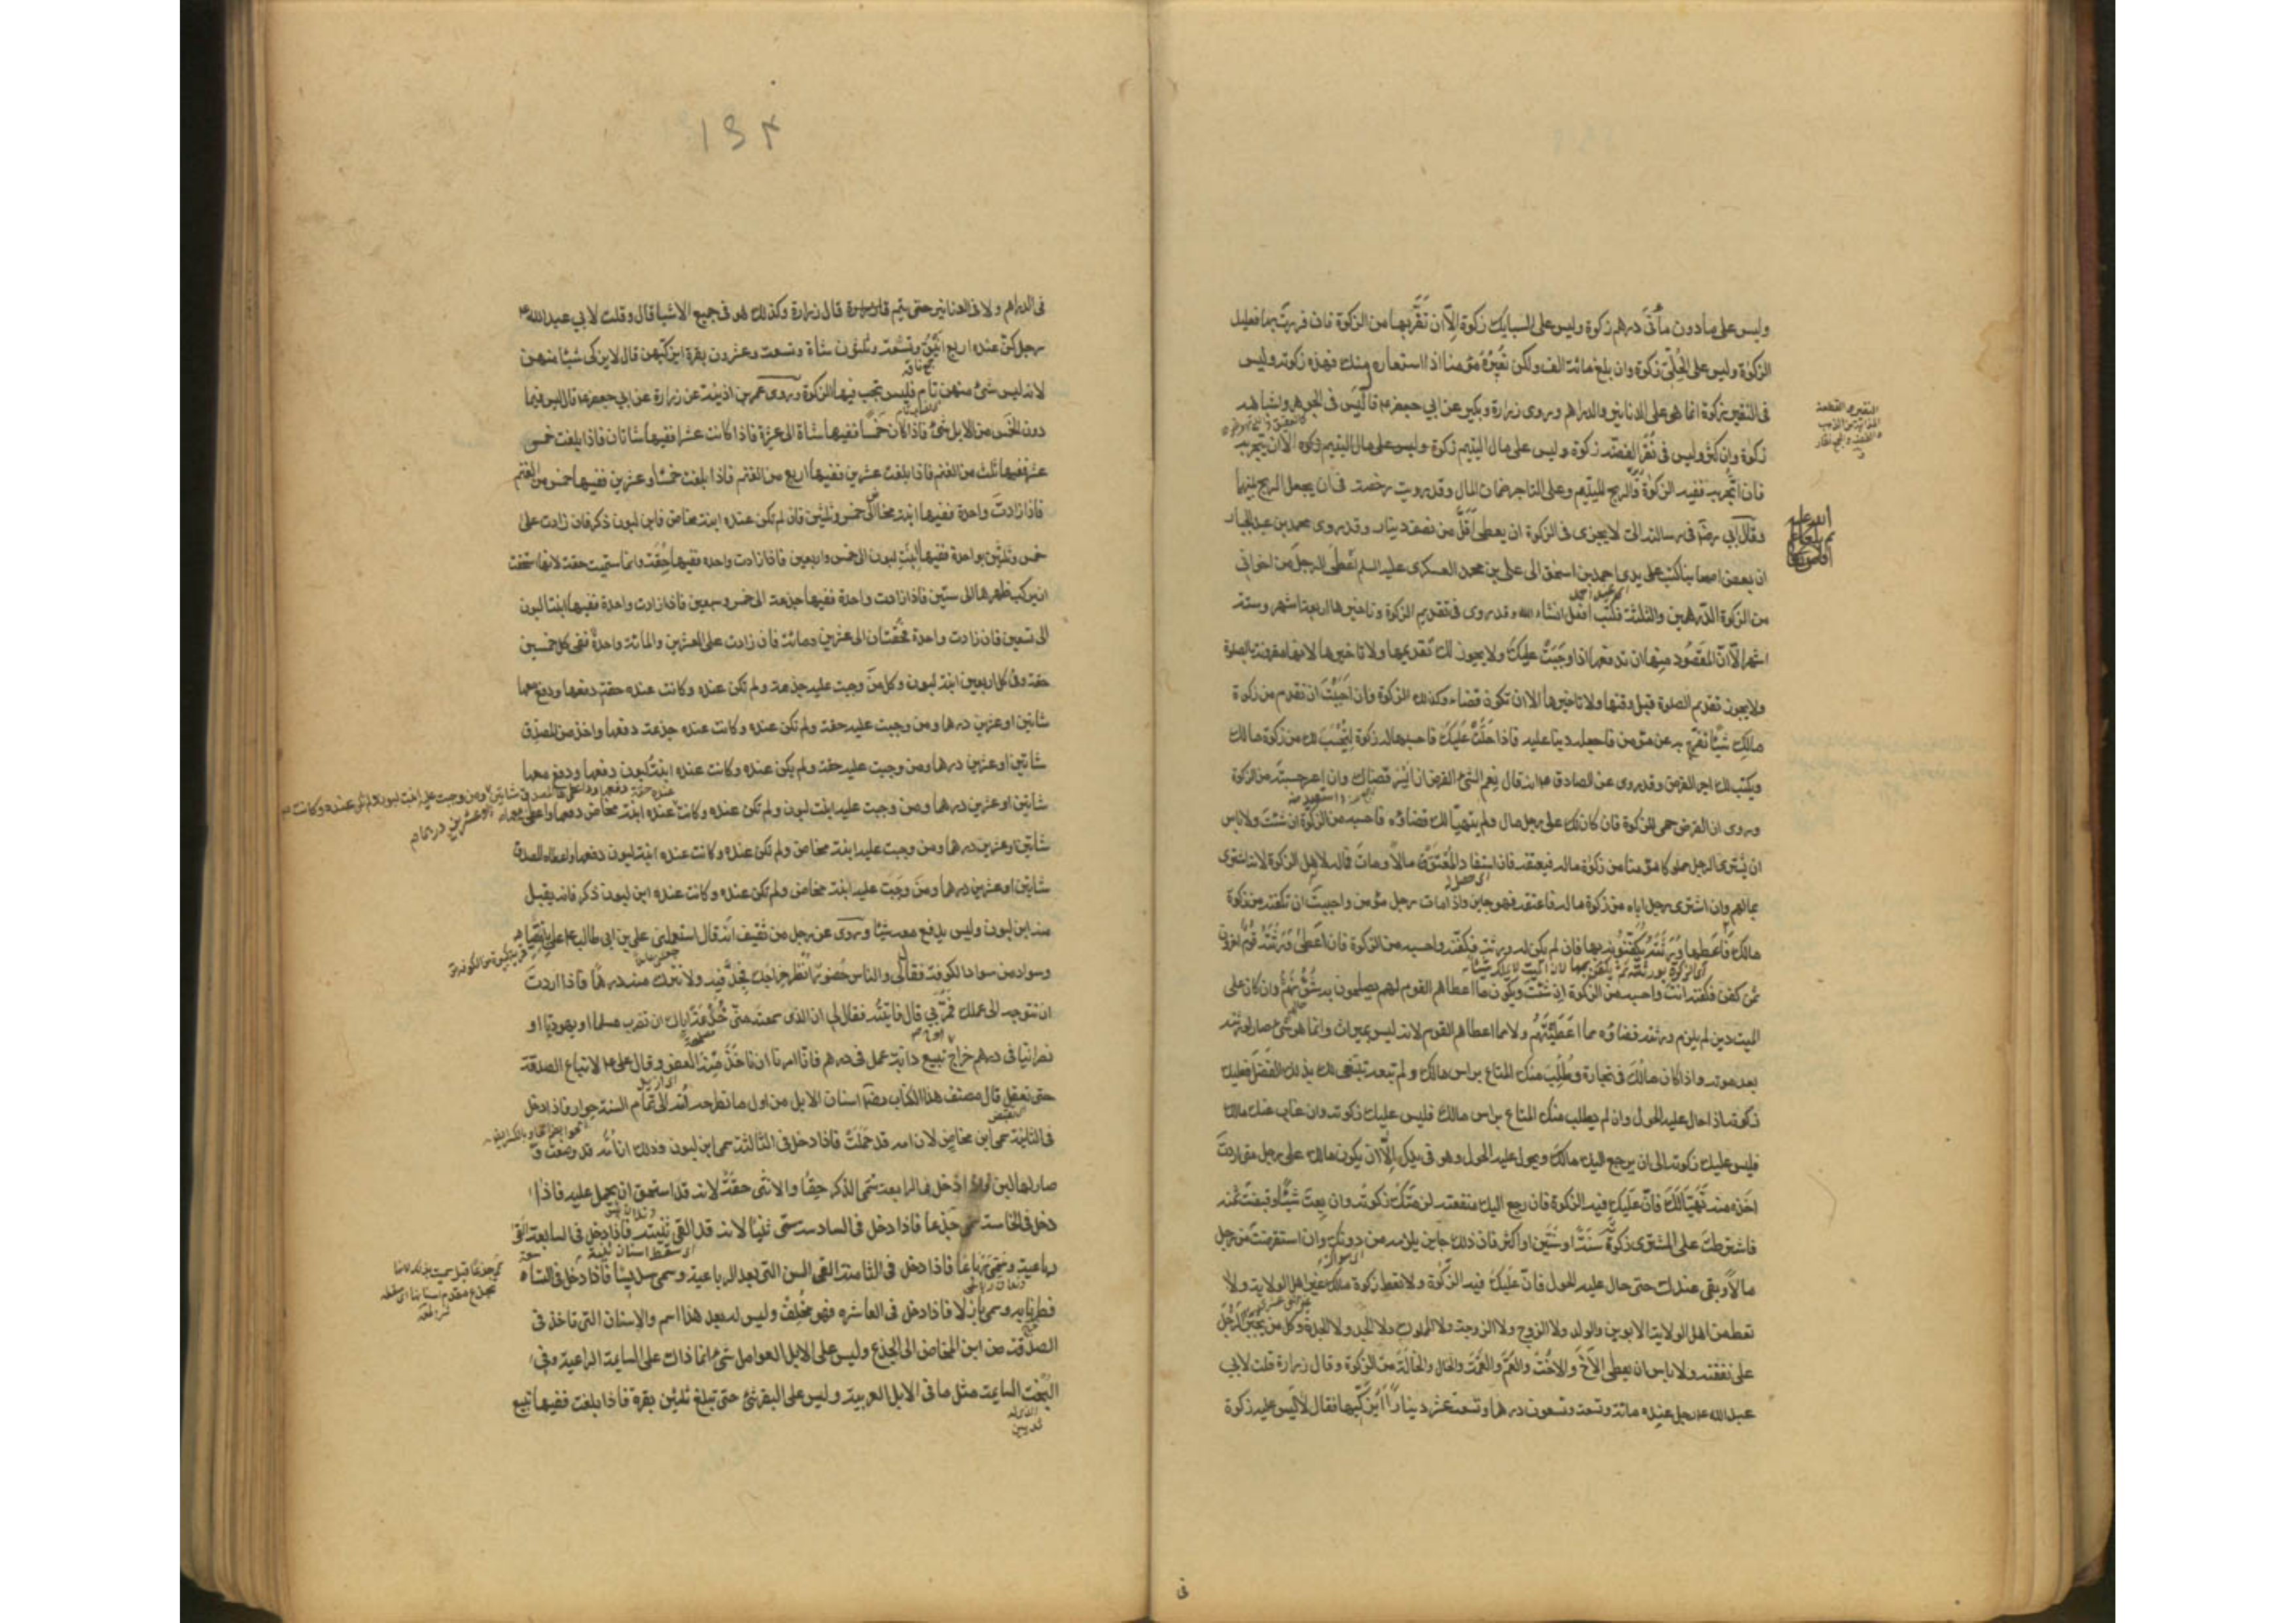 وليس على ما دون مأتى درهم زكوة وليس على السبايك زكوة إلا ان تقربها من الزكوة فان فررت بها فعليك
الزكوة وليس على الحلى زكوة وان بلغ مائة الف ولكن تعيره مؤمنا اذا استعاره منك فهذه زكوته وليس
فى النقير زكوة انما هو على الدنانير والدراهم وروى زرارة وبكير عن ابي جعفر ع قال ليس فى الجوهر واشباهه
زكوة وان كثر وليس فى نقر الفضة زكوة وليس على مال اليتيم زكوة وليس على مال اليتيم زكوة الا ان يتجر به
فان اتجر به ففيه الزكوة والربح لليتيم وعلى التاجر ضمان المال وقد رويت رخصة فى ان يجعل الربح بينهما
وقال أبي رضه فى رسالته الىّ لا يجزى فى الزكوة ان يعطى أقل من نصف دينار وقد روى محمد بن عبد الجبار
ان بعض اصحابنا كتب على يدى احمد بن اسحق الى على بن محمد العسكرى عليه السلم نعطى الرجل من اخوانى
من الزكوة الدرهمين والثلثة فكتب افعل انشاء الله وقد روى فى تقديم الزكوة وتاخيرها اربعة اشهر وستة
اشهر إلا أن المقصود منها ان تدفعها اذا وجبت عليك ولا يجوز لك تقديمها ولا تاخيرها لانها مقرونة بالصلوة
ولا يجوز تقديم الصلوة قبل وقتها ولا تاخيرها الا ان تكون قضاء وكذلك الزكوة فان احببت ان تقدم من زكوة
مالك شيئا تفرج به عن مؤمن فاجعله دينا عليه فاذا حلت عليك فاحسبها له زكوة ليحسب لك من زكوة مالك
ويكتب لك اجر القرض وقد روى عن الصادق ع انه قال نعم الشئ القرض ان ايسر قضاك وان اعسر حسبته من الزكوة
وروى ان القرض حمى للزكوة فان كان لك على رجل مال ولم يتهيأ لك قضاؤه فاحسبه من الزكوة ان شئت ولا باس
ان يشترى الرجل مملوكا مؤمنا من زكوة ماله فيعتقه فاذا استفاد المعتق مالا ومات فماله لاهل الزكوة لانه اشترى
بمالهم وان اشترى رجل اباه من زكوة ماله فاعتقه فهو جايز واذا مات رجل مؤمن واحببت ان تكفنه من زكوة
مالك فاعطها ورثته يكفنونه بها فان لم يكن له ورثة فكفنه واحسبه من الزكوة فان اعطى ورثته قوم آخرون
ثمن كفن فكفنه انت واحسبه من الزكوة ان شئت ويكون ما اعطاهم القوم لهم يصلحون به شؤنهم وان كان على
الميت دين لم يلزم ورثته قضاؤه مما اعطيتهم ولا مما اعطاهم القوم لانه ليس بميراث وانما هو شئ صار لورثته
بعد موته واذا كان مالك فى تجارة وطلب منك المتاع براس مالك ولم تبعه تبتغى بذلك الفضل فعليك
زكوته اذا حال عليه الحول وان لم يطلب منك المتاع براس مالك فليس عليك زكوته وان غاب عنك مالك
فليس عليك زكوته الى ان يرجع اليك مالك ويحول عليه الحول وهو فى يدك إلا ان يكون مالك على رجل متى اردت
اخذه منه تهيأ لك فان عليك فيه الزكوة فان رجع اليك منفعته لزمتك زكوته وان بعت شيئا وقبضت ثمنه
فاشترطت على المشترى زكوة سنة او سنتين او اكثر فان ذلك جايز يلزمه من دونك وان استقرضت من رجل
مالا وبقى عندك حتى حال عليه الحول فان عليك فيه الزكوة ولا تعط زكوة مالك غير اهل الولاية ولا
تعط من اهل الولاية الابوين والولد ولا الزوج ولا الزوجة ولا المملوك ولا الجد ولا الجدة وكل من يجبر الرجل
على نفقته ولا باس ان يعطى الأخ والاخت والعم والعمة والخال والخالة من الزكوة وقال زرارة قلت لابي
عبد الله ع رجل عنده مائة وتسعة وتسعون درهما وتسعة عشر دينارا أيزكيها فقال لا ليس عليه زكوة
فى
١٥٤
فى الدراهم ولا فى الدنانير حتى يتم قال زرارة وكذلك هو فى جميع الاشيا قال وقلت لابي عبد الله ع
رجل كن عنده اربع اينق وتسعة وثلثون شاة وتسعة وعشرون بقرة ايزكيهن قال لا يزكى شيئا منهن
لانه ليس شئ منهن تام فليس تجب فيها الزكوة وروى عمر بن اذينة عن زرارة عن ابي جعفر ع قال ليس فيما
دون الخمس من الابل شئ فاذا كانت خمسا ففيها شاة الى عشرة فاذا كانت عشرا ففيها شاتان فاذا بلغت خمس
عشر ففيها ثلث من الغنم فاذا بلغت عشرين ففيها اربع من الغنم فاذا بلغت خمسا وعشرين ففيها خمس من الغنم
فاذا زادت واحدة ففيها ابنة مخاض الى خمس وثلثين فان لم تكن عنده ابنة مخاض فابن لبون ذكر فان زادت على
خمس وثلثين بواحدة ففيها ابنة لبون الى خمس واربعين فاذا زادت واحدة ففيها حقة وانما سميت حقة لانها استحقت
ان يركب ظهرها الى ستين فاذا زادت واحدة ففيها جذعة الى خمس وسبعين فاذا زادت واحدة ففيها ابنتا لبون
الى تسعين فان زادت واحدة فحقتان الى عشرين ومائة فان زادت على العشرين والمائة واحدة ففى كل خمسين
حقة وفى كل اربعين ابنة لبون وكل من وجبت عليه جذعة ولم تكن عنده وكانت عنده حقة دفعها ودفع معها
شاتين او عشرين درهما ومن وجبت عليه حقة ولم تكن عنده وكانت عنده جذعة دفعها واخذ من المصدق
شاتين او عشرين درهما ومن وجبت عليه حقة ولم يكن عنده وكانت عنده ابنة لبون دفعها ودفع معها
شاتين او عشرين درهما ومن وجبت عليه ابنة لبون ولم تكن عنده وكانت عنده ابنة مخاض دفعها واعطى معها
شاتين او عشرين درهما ومن وجبت عليه ابنة مخاض ولم تكن عنده وكانت عنده ابنة لبون دفعها واعطاه المصدق
شاتين او عشرين درهما ومن وجبت عليه ابنة مخاض ولم تكن عنده وكانت عنده ابن لبون ذكر فانه يقبل
منه ابن لبون وليس يدفع معه شيئا وروى عن رجل من ثقيف انه قال استعملنى على بن ابي طالب ع على بانقيا
وسواد من سواد الكوفة فقال لى والناس حضور انظر خراجك فجد فيه ولا تترك منه درهما فاذا اردت
ان تتوجه الى عملك فمر بي قال فاتيته فقال لى ان الذى سمعته منى خدعة اياك ان تضرب مسلما او يهوديا او
نصرانيا فى درهم خراج او تبيع دابة عمل فى درهم فانا امرنا ان ناخذ منه العفو وقال على ع لا تباع الصدقة
حتى تعقل قال مصنف هذا الكتاب رضه اسنان الابل من اول ما تطرحه امه الى تمام السنة حوار فاذا دخل
فى الثانية سمى ابن مخاض لان امه قد حملت فاذا دخل فى الثالثة سمى ابن لبون وذلك ان امه قد وضعت و
صار لها لبن فاذا دخل فى الرابعة سمى الذكر حقا والانثى حقة لانه قد استحق ان يحمل عليه فاذا
دخل فى الخامسة سمى جذعا فاذا دخل فى السادسة سمى ثنيا لانه قد القى ثنيته فاذا دخل فى السابعة القى
رباعيته وسمى رباعا فاذا دخل فى الثامنة القى السن التى بعد الرباعية وسمى سديسا فاذا دخل فى التاسعة
فطر نابه وسمى بازلا فاذا دخل فى العاشره فهو مخلف وليس له بعد هذا اسم والاسنان التى تاخذ فى
الصدقة من ابن المخاض الى الجذع وليس على الابل العوامل شئ انما ذلك على السايمة الراعية وفى
البخت السايمة مثل ما فى الابل العربية وليس على البقر شئ حتى تبلغ ثلثين بقرة فاذا بلغت ففيها تبيع